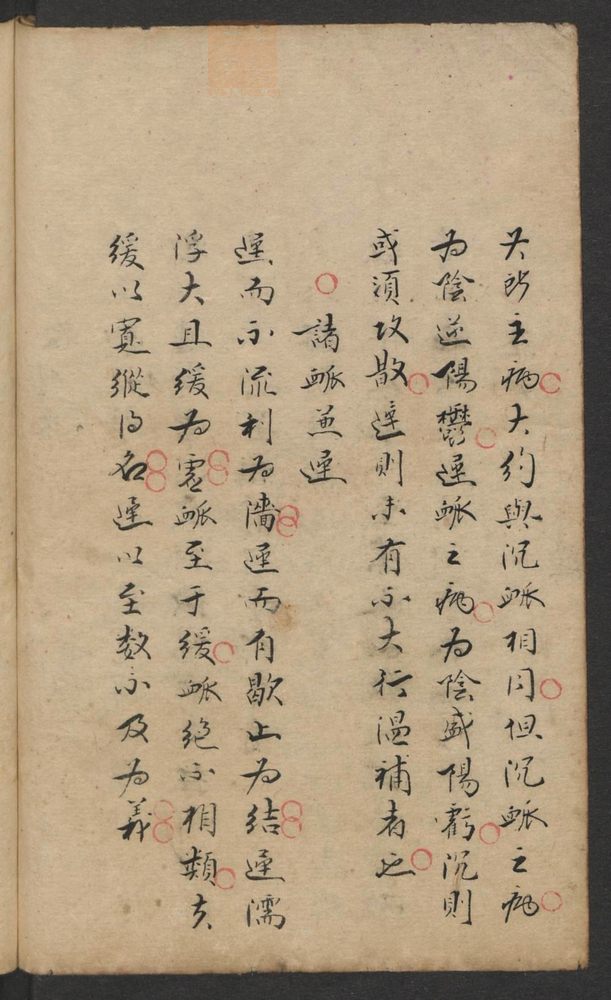 其所主病大約與沉脈相同但沉脈之病
為陰逆陽鬱遲脈之病為陰盛陽虧沉則
或須攻散遲則未有不大行温補者也
諸脈兼遲
遲而不流利為濇遲而有歇止為結遲濡
浮大且緩為虛脈至于緩脈絕不相類夫
緩以寬縱得名遲以至數不及為義